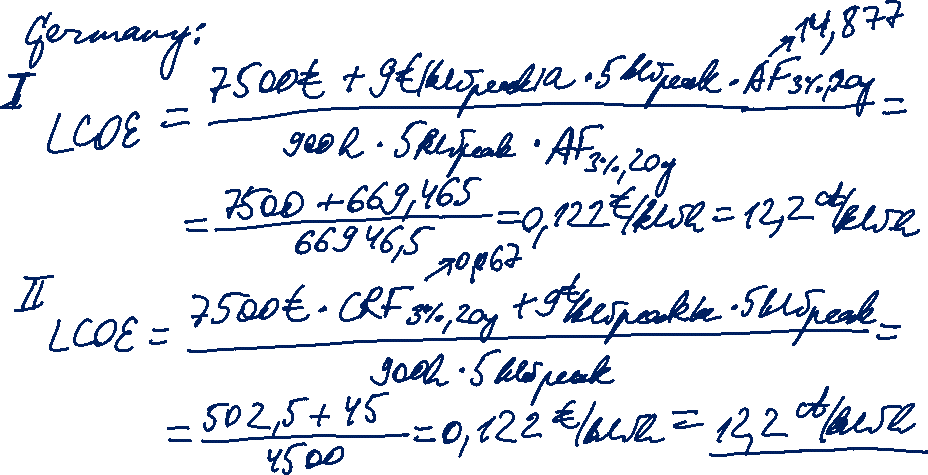 Germany:
↗14,877
I LCOE = 7500€ + 9€/kWpeak/a · 5kWpeak · AF3%,20y =
900h · 5kWpeak · AF3%,20y
= 7500 + 669,465 / 66946,5 = 0,122 €/kWh = 12,2 ct/kWh
↗0,067
II LCOE = 7500€ · CRF3%,20y + 9€/kWpeak/a · 5kWpeak =
900h · 5kWpeak
= 502,5 + 45 / 4500 = 0,122 €/kWh = 12,2 ct/kWh